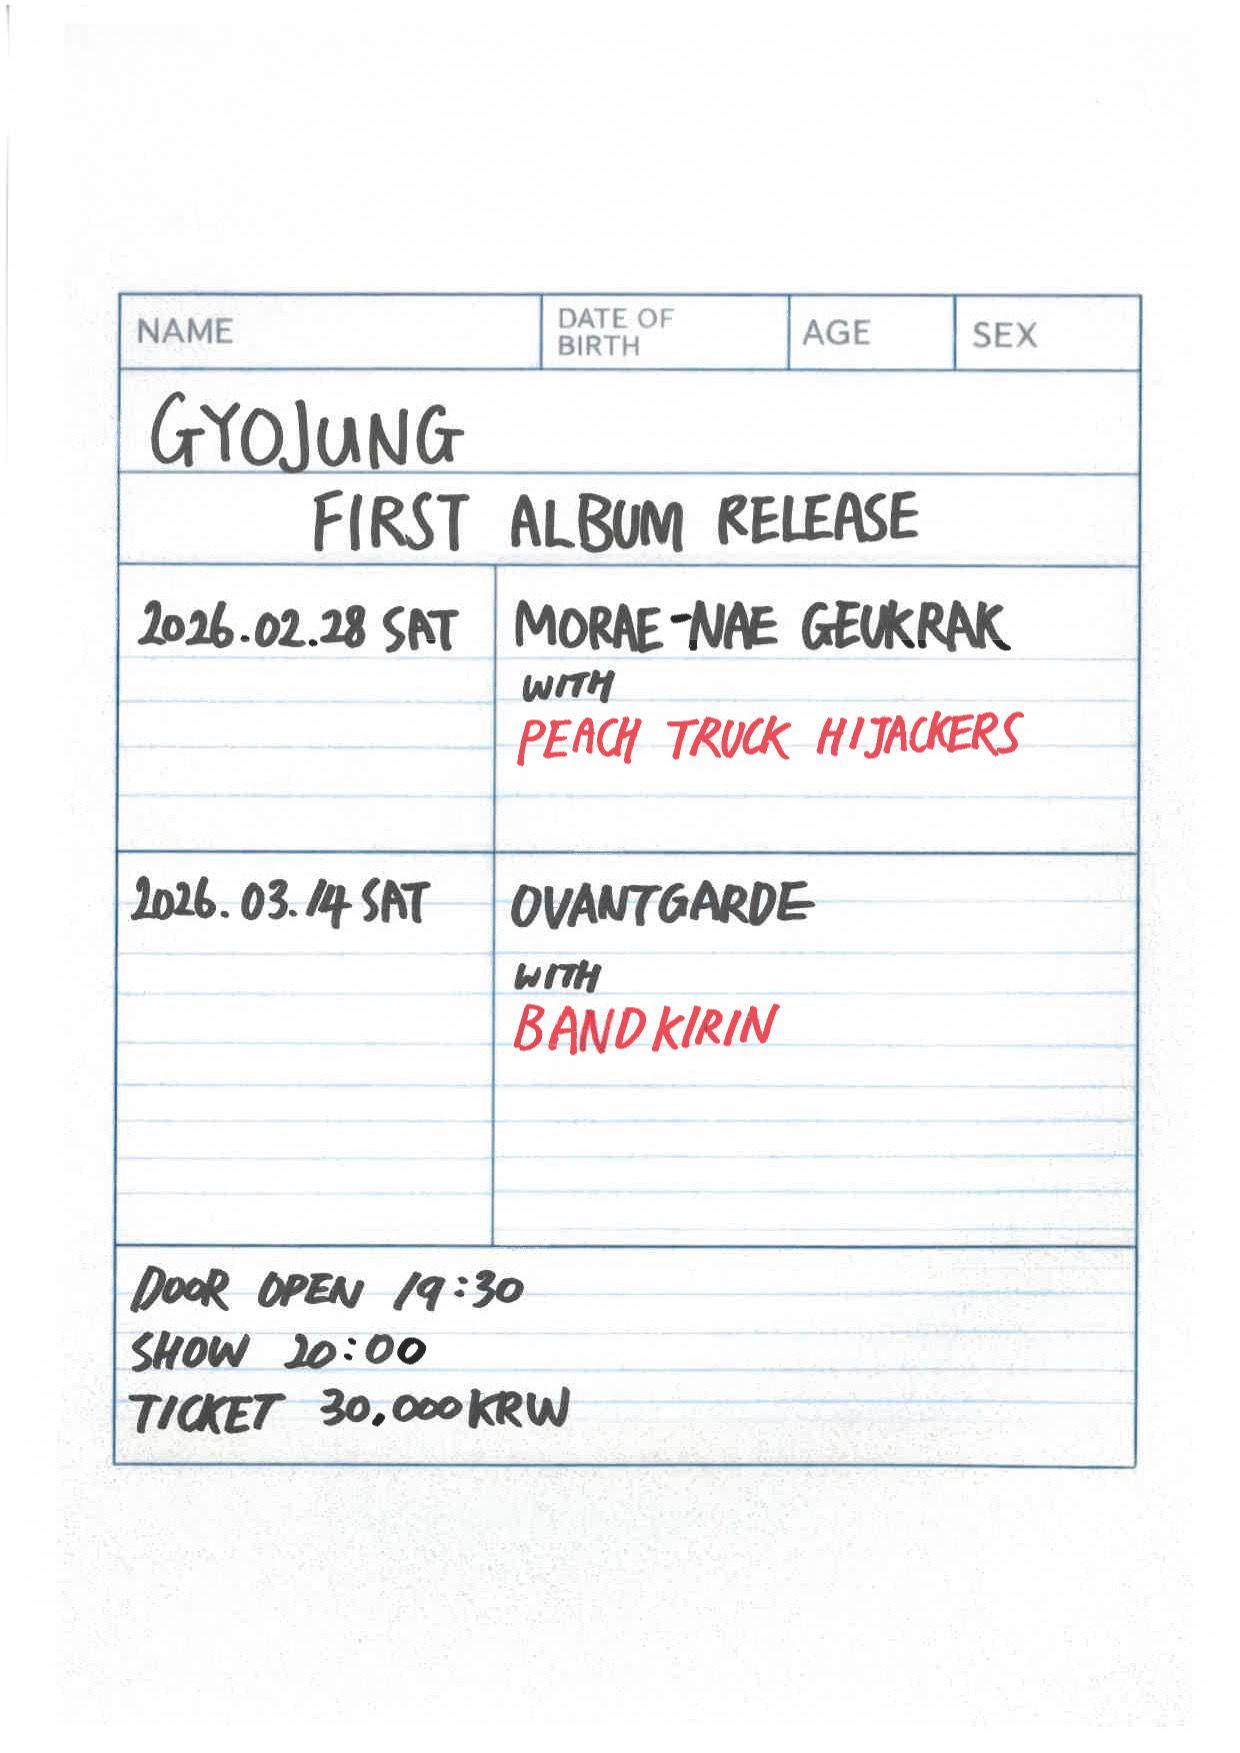 NAME DATE OF BIRTH AGE SEX
GYOJUNG
FIRST ALBUM RELEASE
2026.02.28 SAT MORAE-NAE GEUKRAK
WITH
PEACH TRUCK HIJACKERS
2026.03.14 SAT OVANTGARDE
WITH
BAND KIRIN
DOOR OPEN 19:30
SHOW 20:00
TICKET 30,000KRW